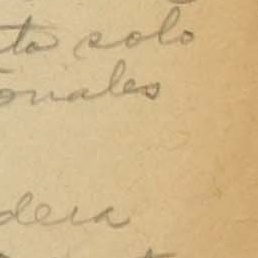 ta solo
onales
dera